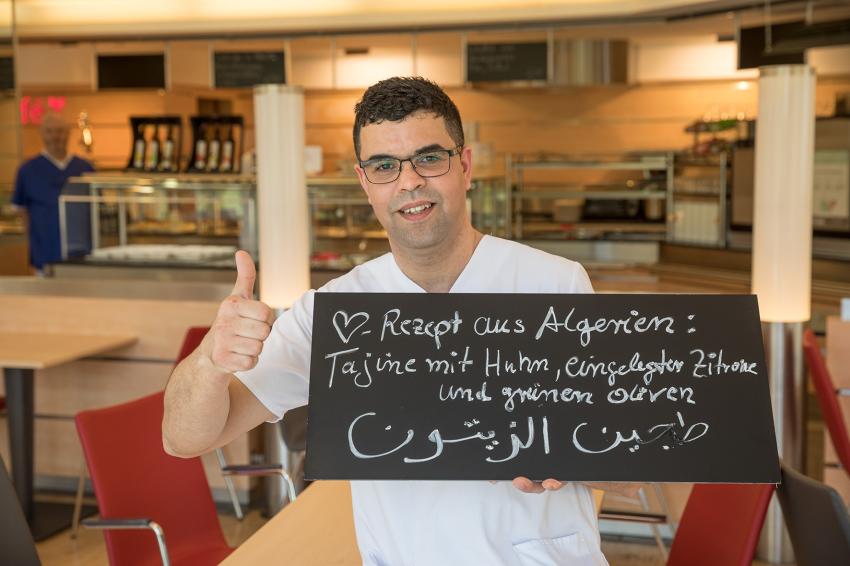 ♡-Rezept aus Algerien:
Tajine mit Huhn, eingelegter Zitrone
und grünen Oliven
طجين الزيتون